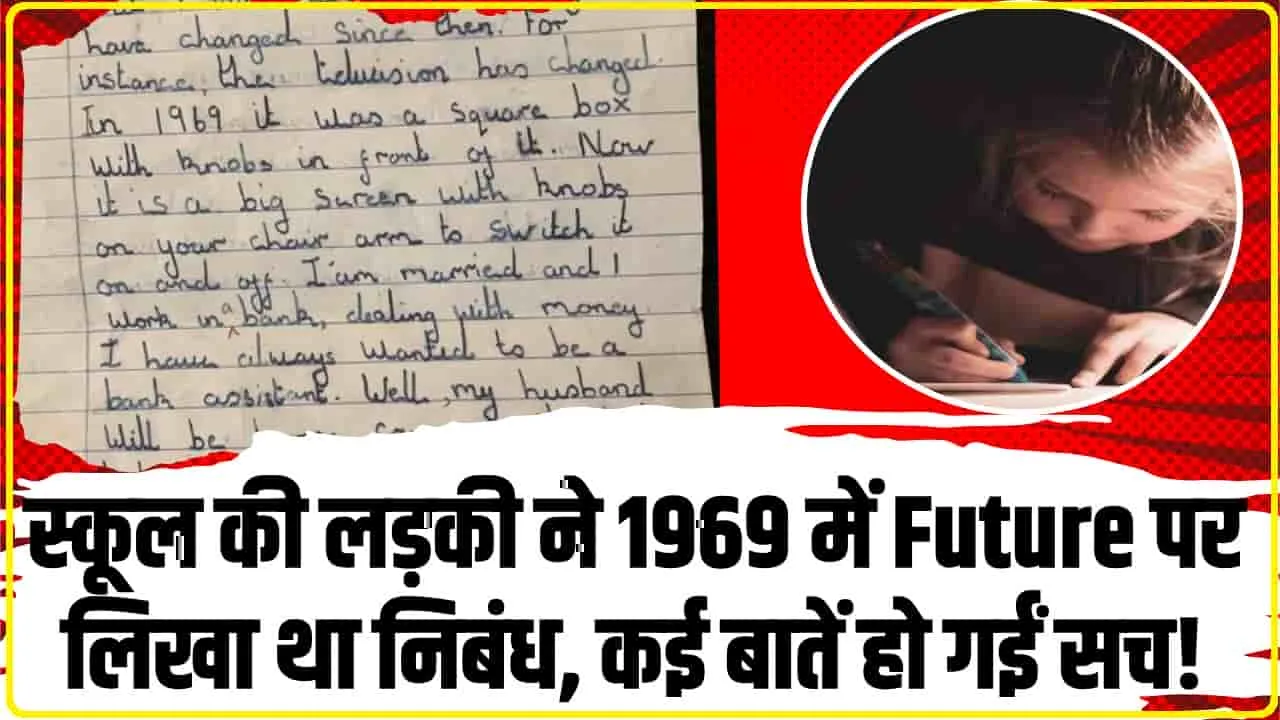 have changed since then. For
instance, the television has changed.
In 1969 it was a square box
with knobs in front of it. Now
it is a big screen with knobs
on your chair arm to switch it
on and off. I am married and I
work in a bank, dealing with money
I have always wanted to be a
bank assistant. Well, my husband
will be
स्कूल की लड़की ने 1969 में Future पर
लिखा था निबंध, कई बातें हो गईं सच!